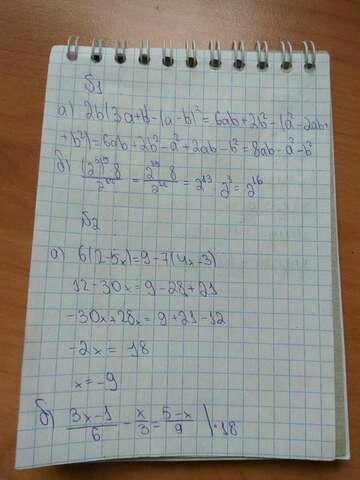 №1
а) 2b(3a+b-(a-b)²=6ab+2b²-(a²-2ab+
+b²)=6ab+2b²-a²+2ab-b²=8ab-a²-b²
б) (2⁵)⁵·8 / 2²² = 2³⁵·8 / 2²² = 2¹³·2³=2¹⁶
№2
а) 6(2-5x)=9-7(4x-3)
12-30x=9-28+21
-30x+28x=9+21-12
-2x=18
x=-9
б) 3x-1 / 6 - x / 3 = 5-x / 9 |·18